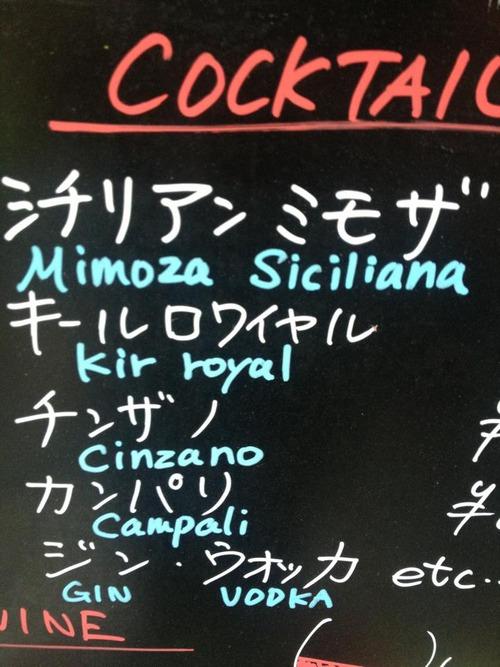 COCKTAIL
シチリアン ミモザ
Mimoza Siciliana
キールロワイヤル
Kir royal
チンザノ
Cinzano
カンパリ
Campali
¥
ジン・ウオッカ etc..
GIN VODKA
WINE